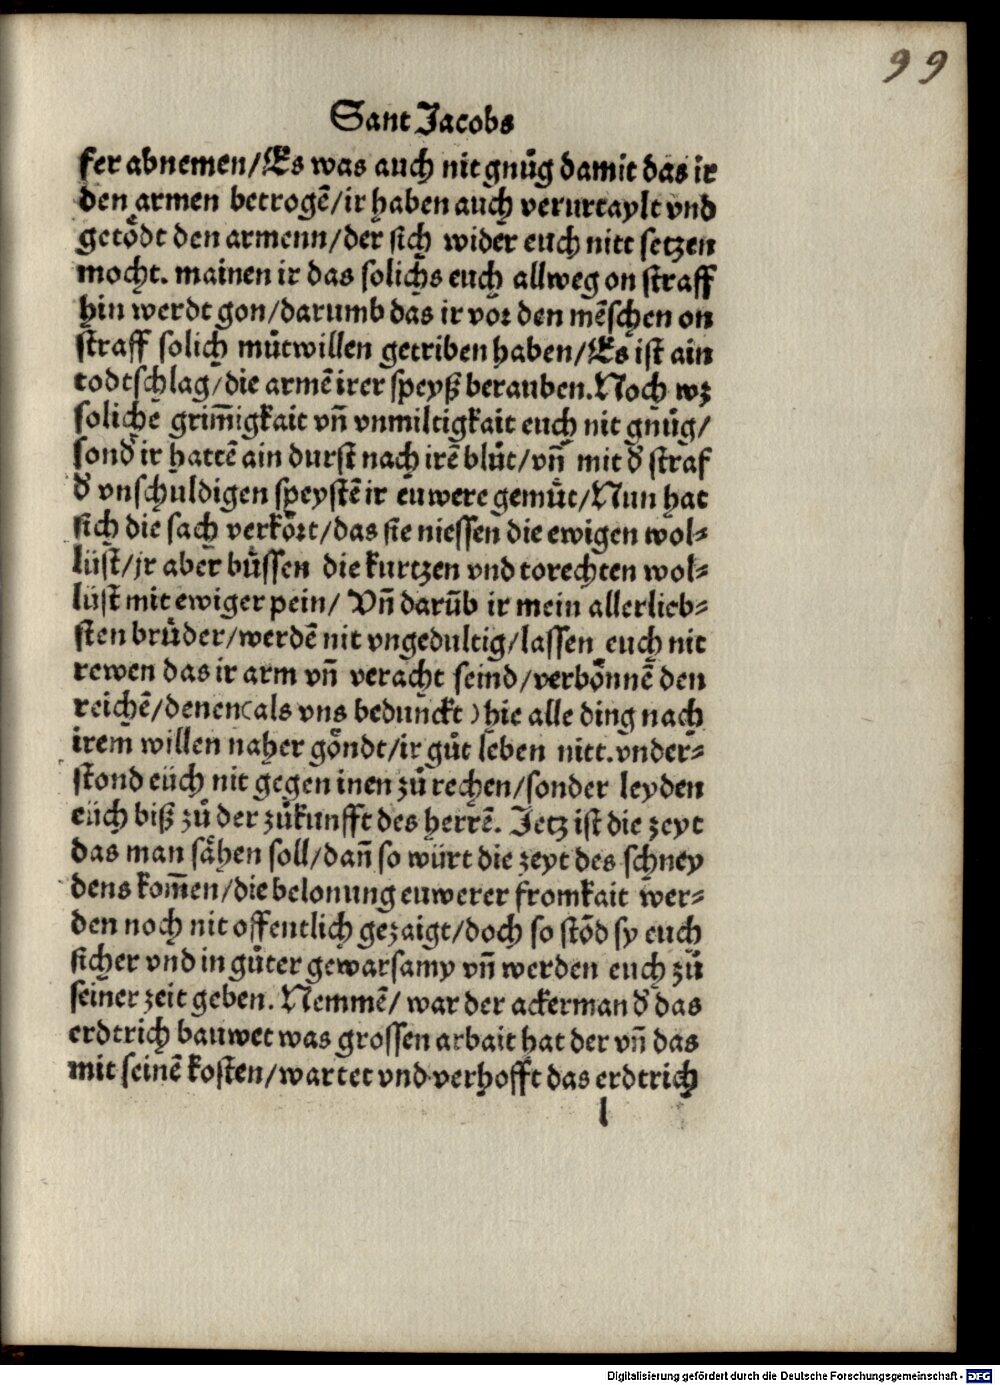 99
Sant Jacobs
fer abnemen/Es was auch nit gnůg damit das ir
den armen betrogẽ/ir haben auch verurtaylt vnd
getoͤdt den armenn/der sich wider euch nitt setzen
mocht. mainen ir das solichs euch allweg on straff
hin werdt gon/darumb das ir vor den mẽschen on
straff solich můtwillen getriben haben/Es ist ain
todtschlag/die armẽ irer speyß berauben. Noch wz
soliche grim̃igkait vñ vnmiltigkait euch nit gnůg/
sond' ir hattẽ ain durst nach irẽ blůt/vñ mit d' straf
d' vnschuldigen speystẽ ir euwere gemuͤt/Nun hat
sich die sach verkoͤrt/das sie niessen die ewigen wol⸗
lüst/jr aber buͤssen die kurtzen vnd torechten wol⸗
lüst mit ewiger pein/ Vñ darũb ir mein allerlieb⸗
sten bruͤder/werdẽ nit vngedultig/lassen euch nit
rewen das ir arm vñ veracht seind/verboͤnnẽ den
reichẽ/denen(als vns bedunckt) hie alle ding nach
irem willen naher goͤndt/ir guͤt leben nitt. vnder⸗
stond eüch nit gegen inen zů rechen/sonder leyden
eüch biß zů der zůkunfft des herrẽ. Jetz ist die zeyt
das man saͤhen soll/dañ so würt die zeyt des schney
dens kom̃en/die belonung euwerer fromkait wer⸗
den noch nit offentlich gezaigt/doch so stõd sy euch
sicher vnd in gůter gewarsamy vñ werden euch zů
seiner zeit geben. Nemmẽ/ war der ackerman d' das
erdtrich bauwet was grossen arbait hat der vñ das
mit seinẽ kosten/wartet vnd verhofft das erdtrich
l
Digitalisierung gefördert durch die Deutsche Forschungsgemeinschaft - DFG